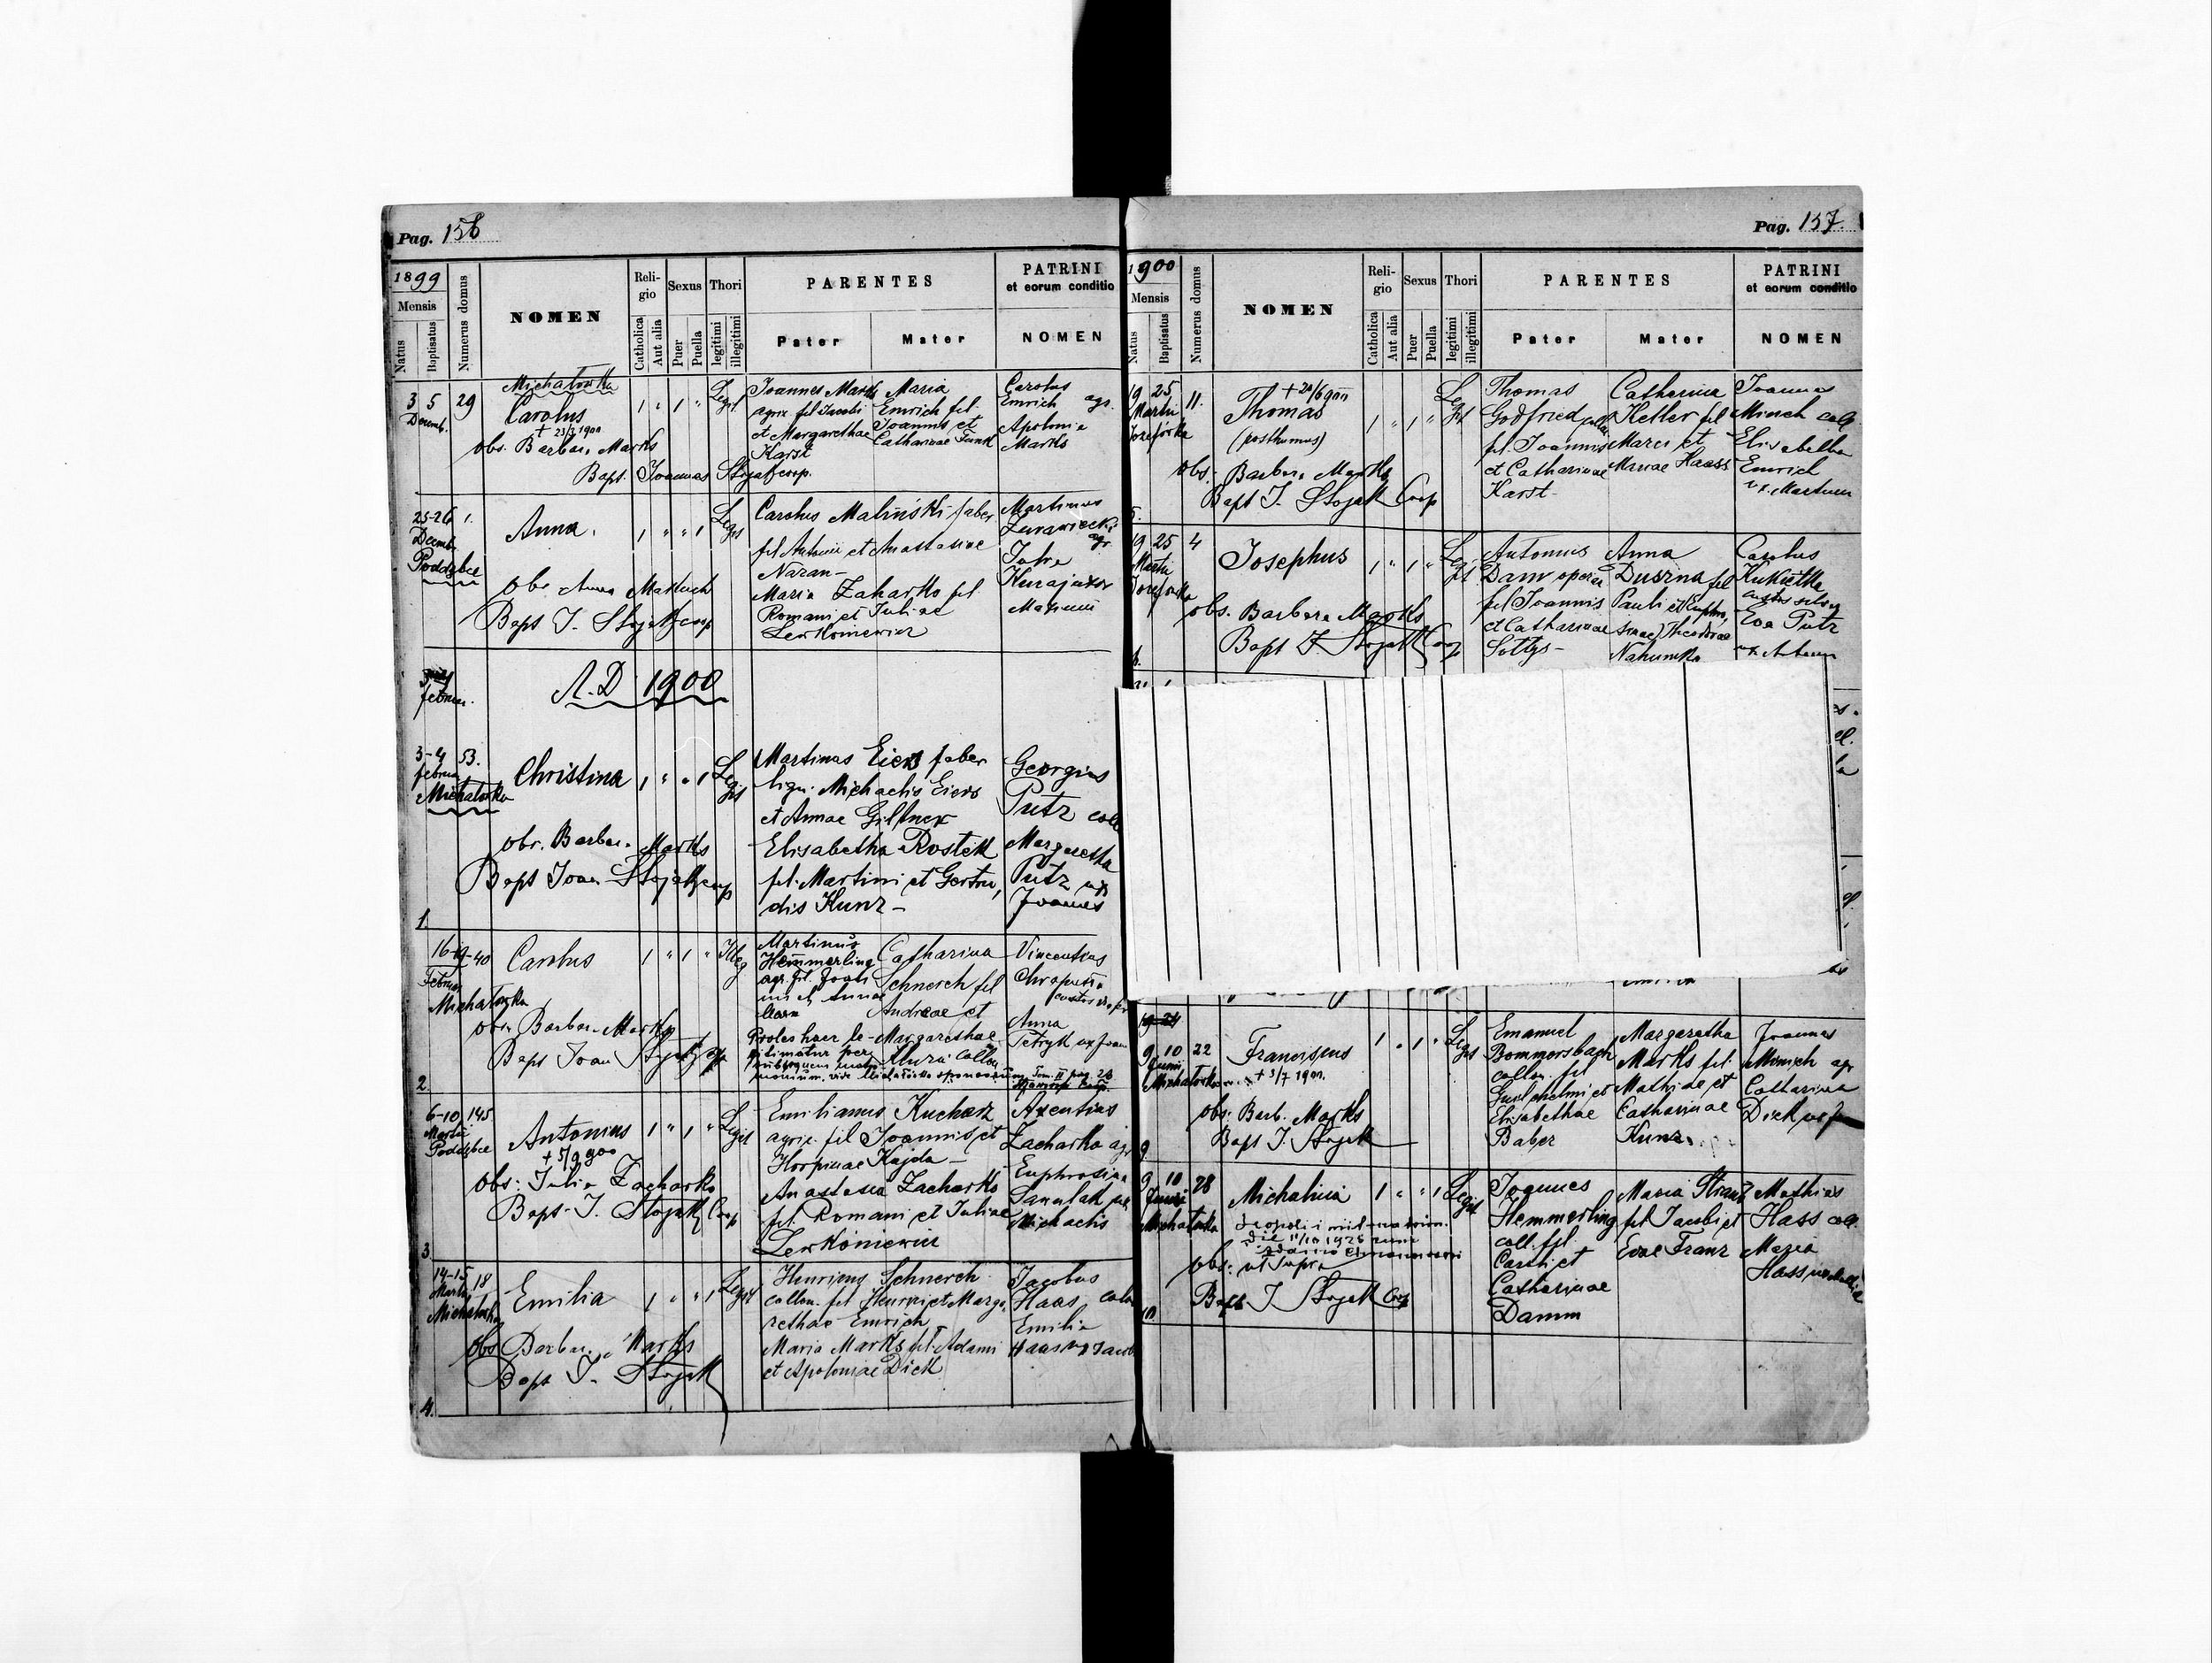 Pag. 156
1899
Mensis
Natus
Baptisatus
Numerus domus
NOMEN
Religio
Catholica
Aut alia
Sexus
Puer
Puella
Thori
legitimi
illegitimi
PARENTES
Pater
Mater
PATRINI
et eorum conditio
NOMEN
Michałówka
3 5 29
Decemb.
Carolus
+ 23/3 1900
obs. Barbara Marks
Bapt. Joannes Stojek coop.
Legit
Joannes Marks
agric fil Jacobi
et Margarethae
Karst
Maria
Emrich fil
Joannis et
Catharinae Funk
Carolus
Emrich agr.
Apolonia
Marks
25-26 1.
Decemb
Poddębce
Anna.
obs Anna Markuch
Bapt J. Stojek coop
Legit
Carolus Maliński faber
fil Antonii et Anastasiae
Naran-
Maria Zaharko fil
Romani et Juliae
Lewkoniewicz
Martinus
agr
Julia
Maximi
februar.
A.D 1900
3-4 53.
februar
Michałówka
Christina
obs. Barbara Marks
Bapt Joan Stojek coop
Legit
Martinus Eiers faber
lign. Michaelis Eiers
et Annae Giltner
Elisabetha Rostek
fil. Martini et Gertru,
dis Kunz-
Georgius
Putz coll
Margaretha
Putz ux
Joannis
1.
16-19-40
Februar
Michałówka
Carolus
obs. Barbara Marks
Bapt Joan Stojek coop
Illeg
Martinus
Hemmerling
agr. fil. Joan
nis et Annae
Proles haec le-
gitimatur per
subsequens matri-
monium, vide
Catharina
Schnerch fil
Andreae et
Margarethae
Vincentius
custos
Anna
Petryk ux Joan
Tom. II pag. 26
2.
6-10 145
Martii
Poddębce
Antonius
+ 5/9 900
obs: Julia Zacharko
Bapt. J. Stojek Coop
Legit
Emilianus Kucharz
agric. fil Joannis et
Horpinae Kajda-
Anastasia Zacharko
fil. Romani et Juliae
Lewkoniewicz
Axentius
Zacharko agr
Euphrosina
Michaelis
3.
14-15 18
Martii
Michałówka
Emilia
obs Barbara Marks
Bapt J. Stojek
Legit
Henricus Schnerch
colon. fil Henrici et Marga,
rethae Emrich
Maria Marks fil Adami
et Apoloniae Dick
Jacobus
Haas colon
Emilia
Haas ux Jacob
4.
Pag. 157
1900
Mensis
Natus
Baptisatus
Numerus domus
NOMEN
Religio
Catholica
Aut alia
Sexus
Puer
Puella
Thori
legitimi
illegitimi
PARENTES
Pater
Mater
PATRINI
et eorum conditio
NOMEN
19 25 11.
Martii
Józefówka
+ 20/6 900
Thomas
(posthumus)
obs: Barbara Marks
Bapt J. Stojek Coop
Legit
Thomas
Godfried
fil. Joannis
et Catharinae
Karst-
Catharina
Keller fil
Marci et
Mariae Haass
Joannes
Minch col
Elisabetha
Emrich
ux. Martini
5.
19 25 4
Martii
Józefówka
Josephus
obs. Barbara Marks
Bapt J. Stojek Coop
Legit
Antonius
Dam
fil Joannis
et Catharinae
Sołtys-
Anna
Duszna fil
Pauli et Euphro,
sinae) Theodorae
Nahumka
Carolus
Kukiełka
custos silvae
Eva Putz
ux. Antonii
6.
19-24
9 10 22
Junii
Michałówka
Franciscus
+ 3/7 1900.
obs: Barb. Marks
Bapt J. Stojek
Legit
Emanuel
Bommersbach
colon. fil
Guilhelmi et
Elisabethae
Baber
Margaretha
Marks fil.
Mathiae et
Catharinae
Kunz
Joannes
Minnich agr
Catharina
Dick ux
9
9 10 28
Junii
Michałówka
Michalina
Leopoli iniit matrim.
die 11/10 1926 cum
obs: ut supra
Bapt J Stojek Coop
Legit
Joannes
Hemmerling
coll. fil.
Caroli et
Catharinae
Damm
Maria Strauz
fil Jacobi et
Evae Franz
Mathias
Hass col.
Maria
Hass ux Mathiae
10.